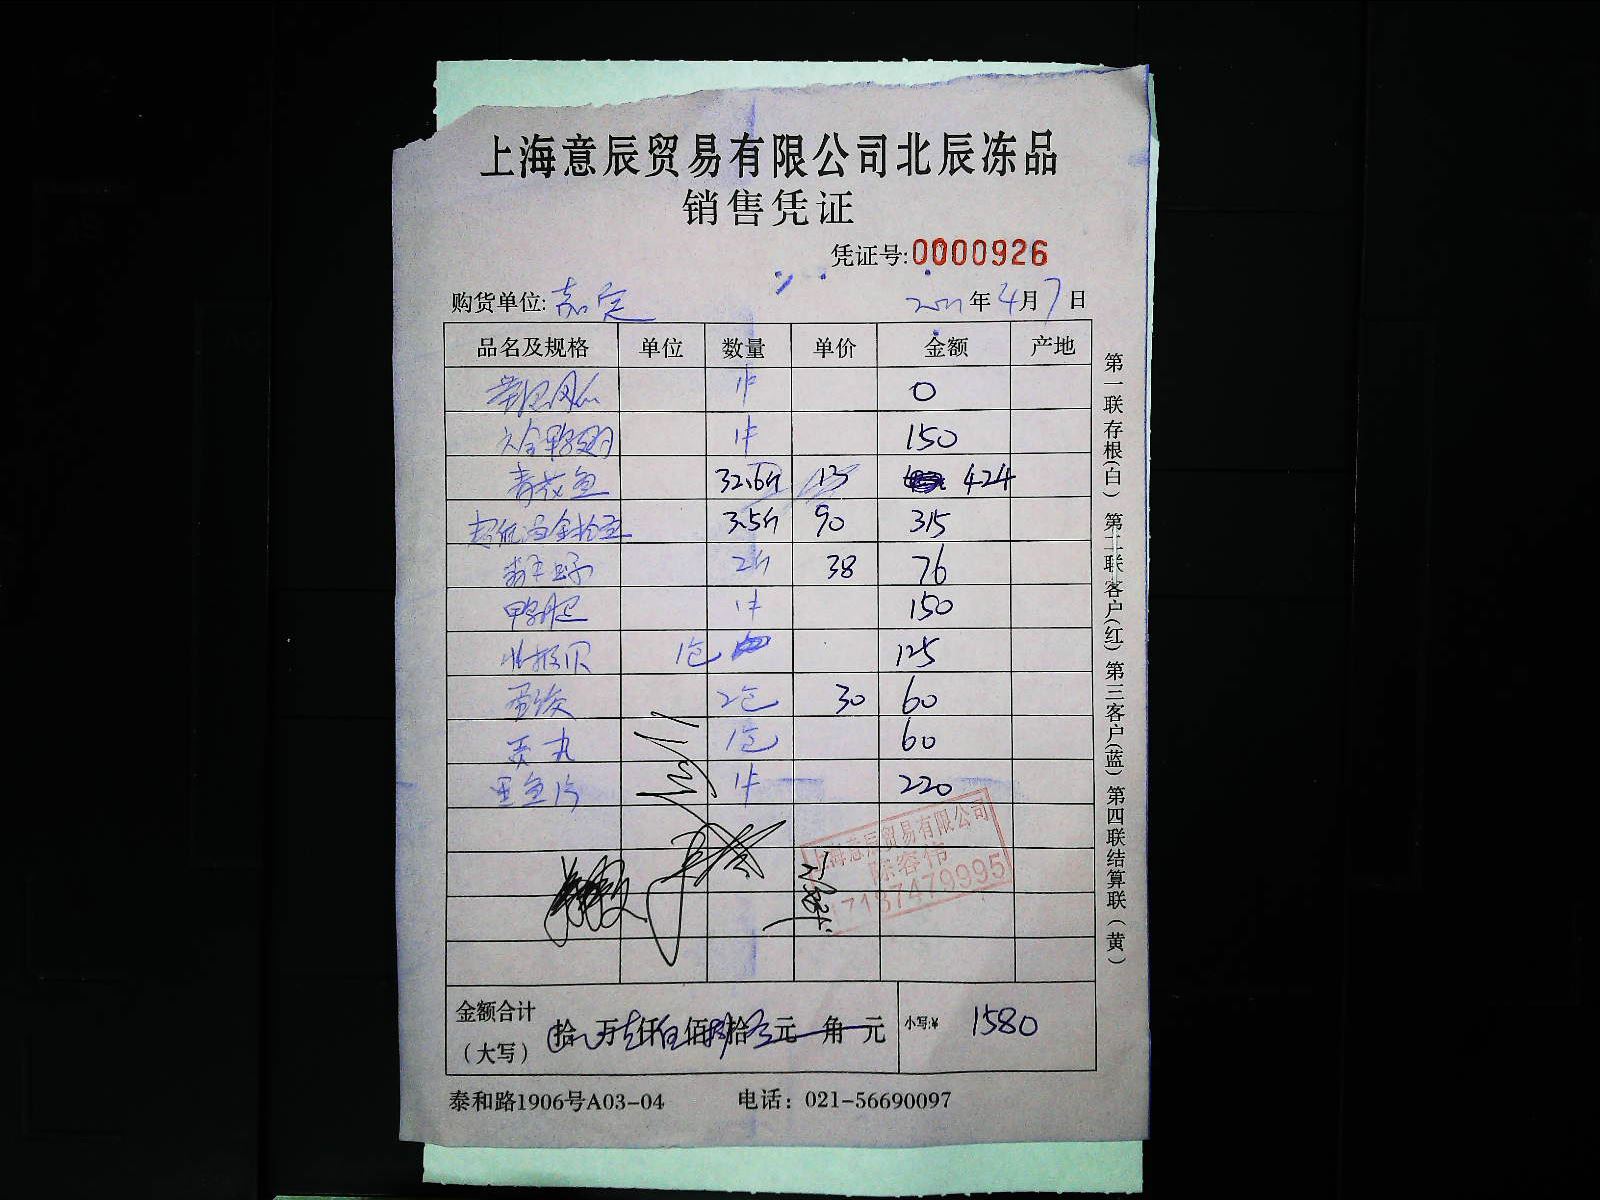 上海意辰贸易有限公司北辰冻品
销售凭证
凭证号:0000926
购货单位:嘉定 2021年4月7日
品名及规格 单位 数量 单价 金额 产地
1件 0
1件 150
青花鱼 32.6斤 13 424
超低温金枪鱼 3.5斤 90 315
2斤 38 76
鸭肫 1件 150
北极贝 1包 125
蛋饺 2包 30 60
贡丸 1包 60
黑鱼片 1件 220
上海意辰贸易有限公司
陈容伟
第一联存根(白) 第二联客户(红) 第三客户(蓝) 第四联结算联(黄)
金额合计
(大写) 拾 万 仟 佰 拾 元 角 元 小写:¥ 1580
泰和路1906号A03-04 电话:021-56690097